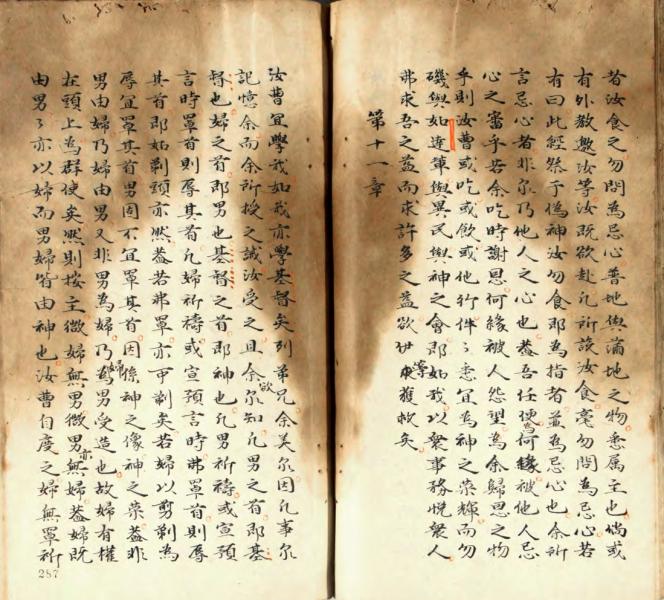 者汝食之勿問為忌心普地與蒲地之物悉属主也倘或
有外教邀汝等汝既欲赴凡所設汝食毫勿問為忌心若
有曰此經祭于偽神汝勿食即為指者並為忌心也余所
言忌心者非尔乃他人之心也蓋吾任便為何緣被他人忌
心之審乎若余吃時謝恩何緣被人怨望為余歸恩之物
乎則汝曹或吃或飲或他行件〻悉宜為神之榮輝而勿
礙與如達輩與異民與神之會即如我以衆事務悅衆人
弗求吾之益而求許多之益欲伊等獲救矣
第十一章
汝曹宜學我如我亦學基督矣列弟兄余美尔因凡事尔
記憶余而余所授之誡汝受之且余欲尔知凡男之首即基
督也婦之首即男也基督之首即神也凡男祈禱或宣預
言時罩首則辱其首凡婦祈禱或宣預言時弗罩首則辱
其首即如剃頭亦然蓋若弗罩亦可剃矣若婦以剪剃為
辱宜罩其首男固不宜罩其首因係神之像神之榮蓋非
男由婦乃婦由男又非男為婦乃婦為男受造也故婦有權
在頭上為群使矣然則按主微婦無男微男亦無婦蓋婦既
由男〻亦以婦而男婦皆由神也汝曹自度之婦無罩祈
287